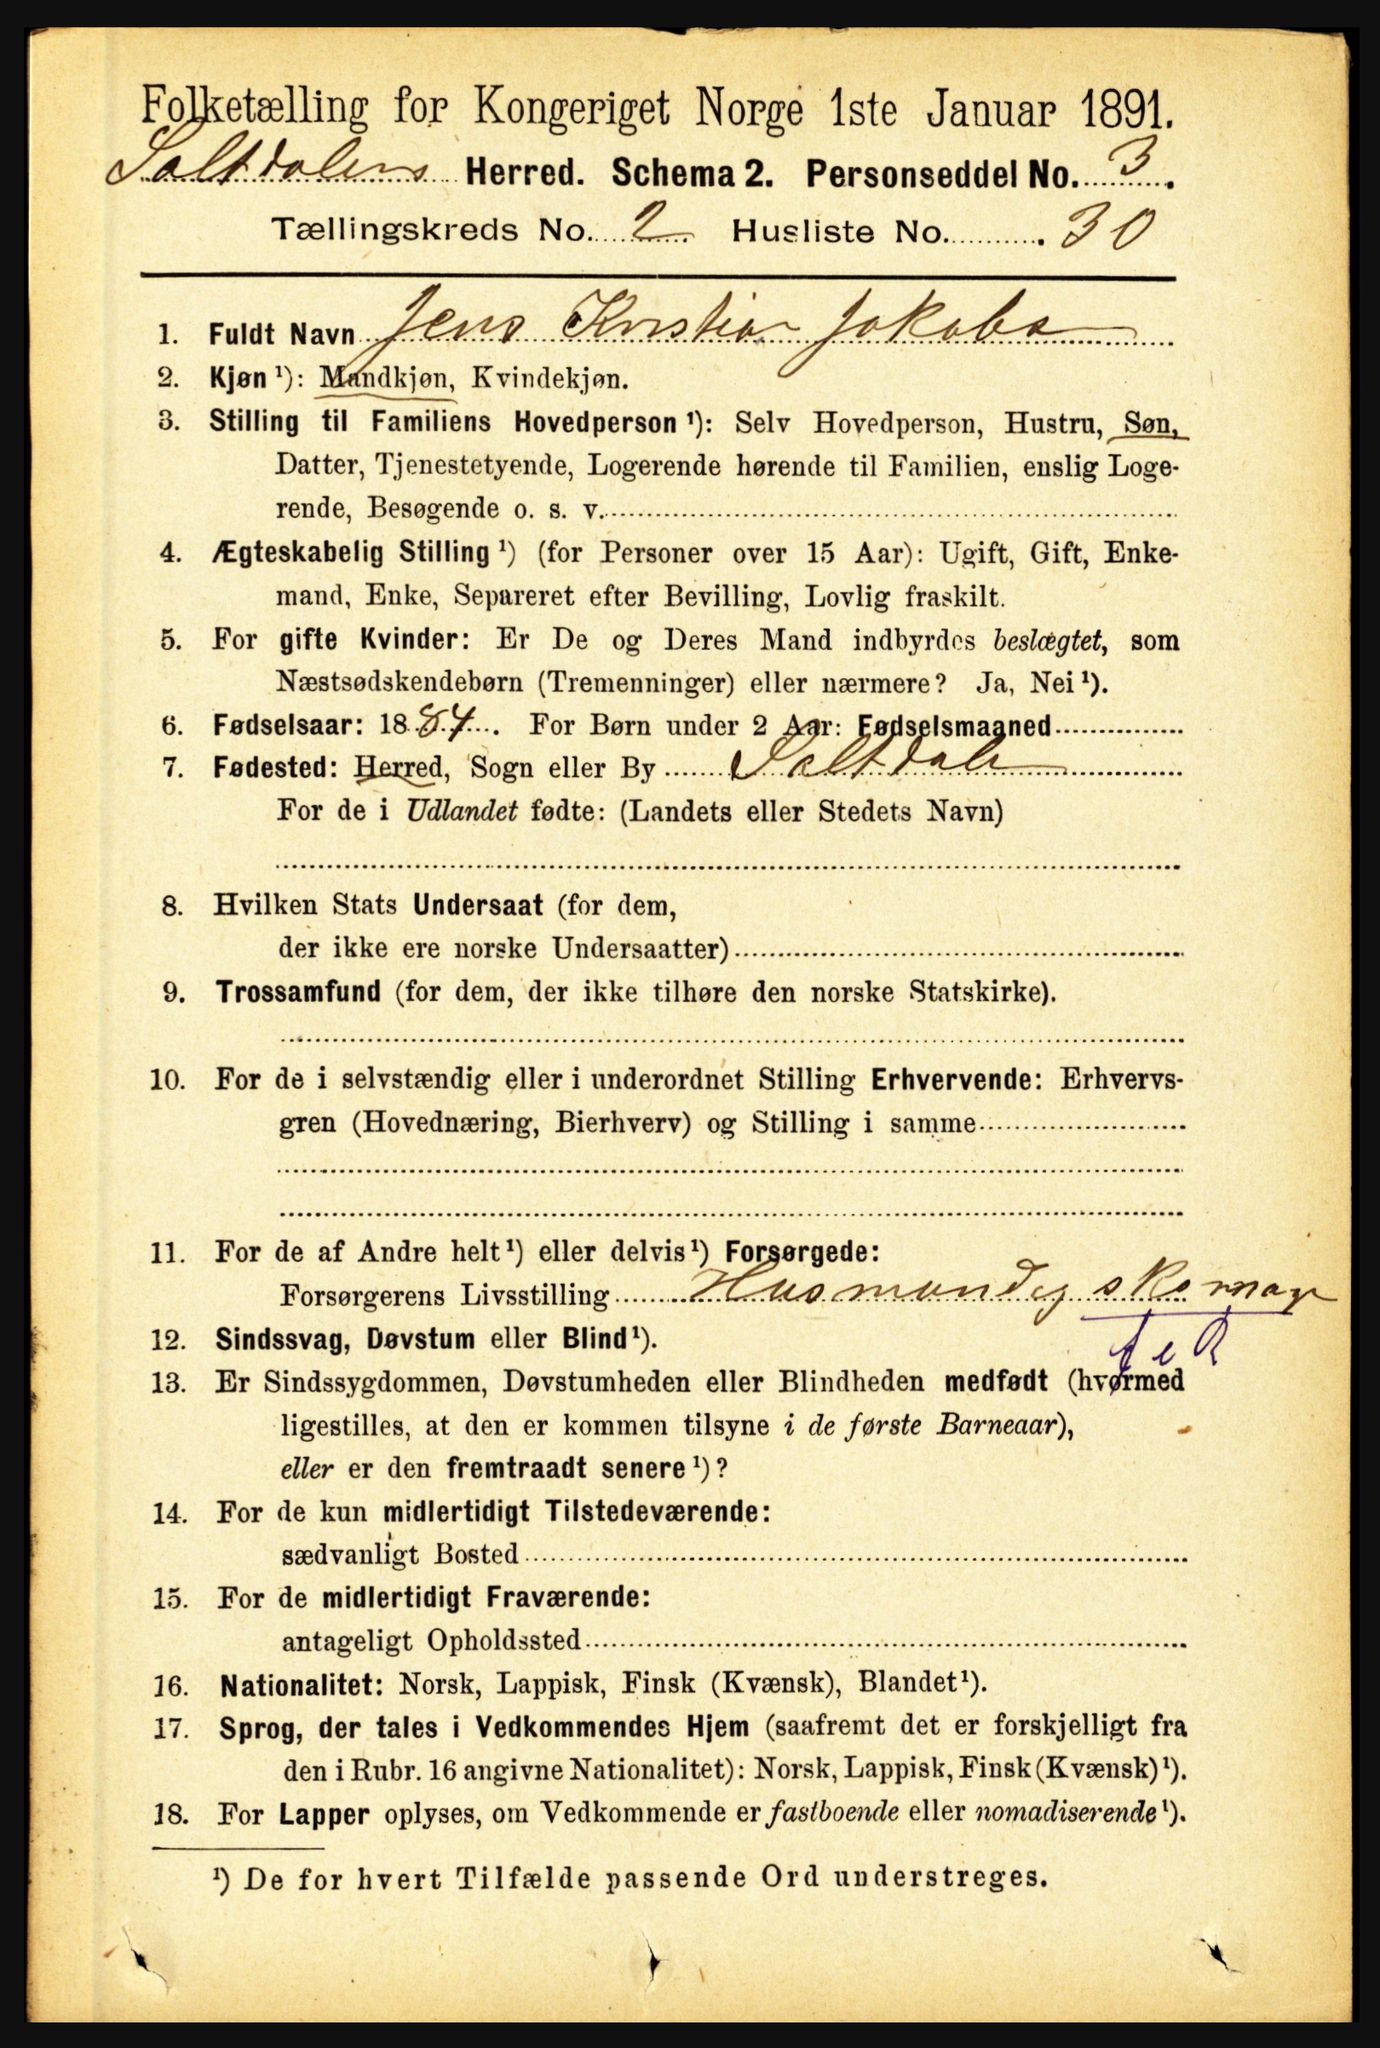 Folketælling for Kongeriget Norge 1ste Januar 1891.
Saltdalens Herred. Schema 2. Personseddel No. 3.
Tællingskreds No. 2. Husliste No. 30
1. Fuldt Navn Jens Kristia Jakobs
2. Kjøn ¹): Mandkjøn, Kvindekjøn.
3. Stilling til Familiens Hovedperson ¹): Selv Hovedperson, Hustru, Søn,
Datter, Tjenestetyende, Logerende hørende til Familien, enslig Loge-
rende, Besøgende o. s. v.
4. Ægteskabelig Stilling ¹) (for Personer over 15 Aar): Ugift, Gift, Enke-
mand, Enke, Separeret efter Bevilling, Lovlig fraskilt.
5. For gifte Kvinder: Er De og Deres Mand indbyrdes beslægtet, som
Næstsødskendebørn (Tremenninger) eller nærmere? Ja, Nei ¹).
6. Fødselsaar: 1884. For Børn under 2 Aar: Fødselsmaaned
7. Fødested: Herred, Sogn eller By Saltdale
For de i Udlandet fødte: (Landets eller Stedets Navn)
8. Hvilken Stats Undersaat (for dem,
der ikke ere norske Undersaatter)
9. Trossamfund (for dem, der ikke tilhøre den norske Statskirke).
10. For de i selvstændig eller i underordnet Stilling Erhvervende: Erhvervs-
gren (Hovednæring, Bierhverv) og Stilling i samme
11. For de af Andre helt ¹) eller delvis ¹) Forsørgede:
Forsørgerens Livsstilling Husmandog skomag
12. Sindssvag, Døvstum eller Blind ¹).
13. Er Sindssygdommen, Døvstumheden eller Blindheden medfødt (hvormed
ligestilles, at den er kommen tilsyne i de første Barneaar),
eller er den fremtraadt senere ¹)?
14. For de kun midlertidigt Tilstedeværende:
sædvanligt Bosted
15. For de midlertidigt Fraværende:
antageligt Opholdssted
16. Nationalitet: Norsk, Lappisk, Finsk (Kvænsk), Blandet ¹).
17. Sprog, der tales i Vedkommendes Hjem (saafremt det er forskjelligt fra
den i Rubr. 16 angivne Nationalitet): Norsk, Lappisk, Finsk (Kvænsk) ¹).
18. For Lapper oplyses, om Vedkommende er fastboende eller nomadiserende ¹).
¹) De for hvert Tilfælde passende Ord understreges.